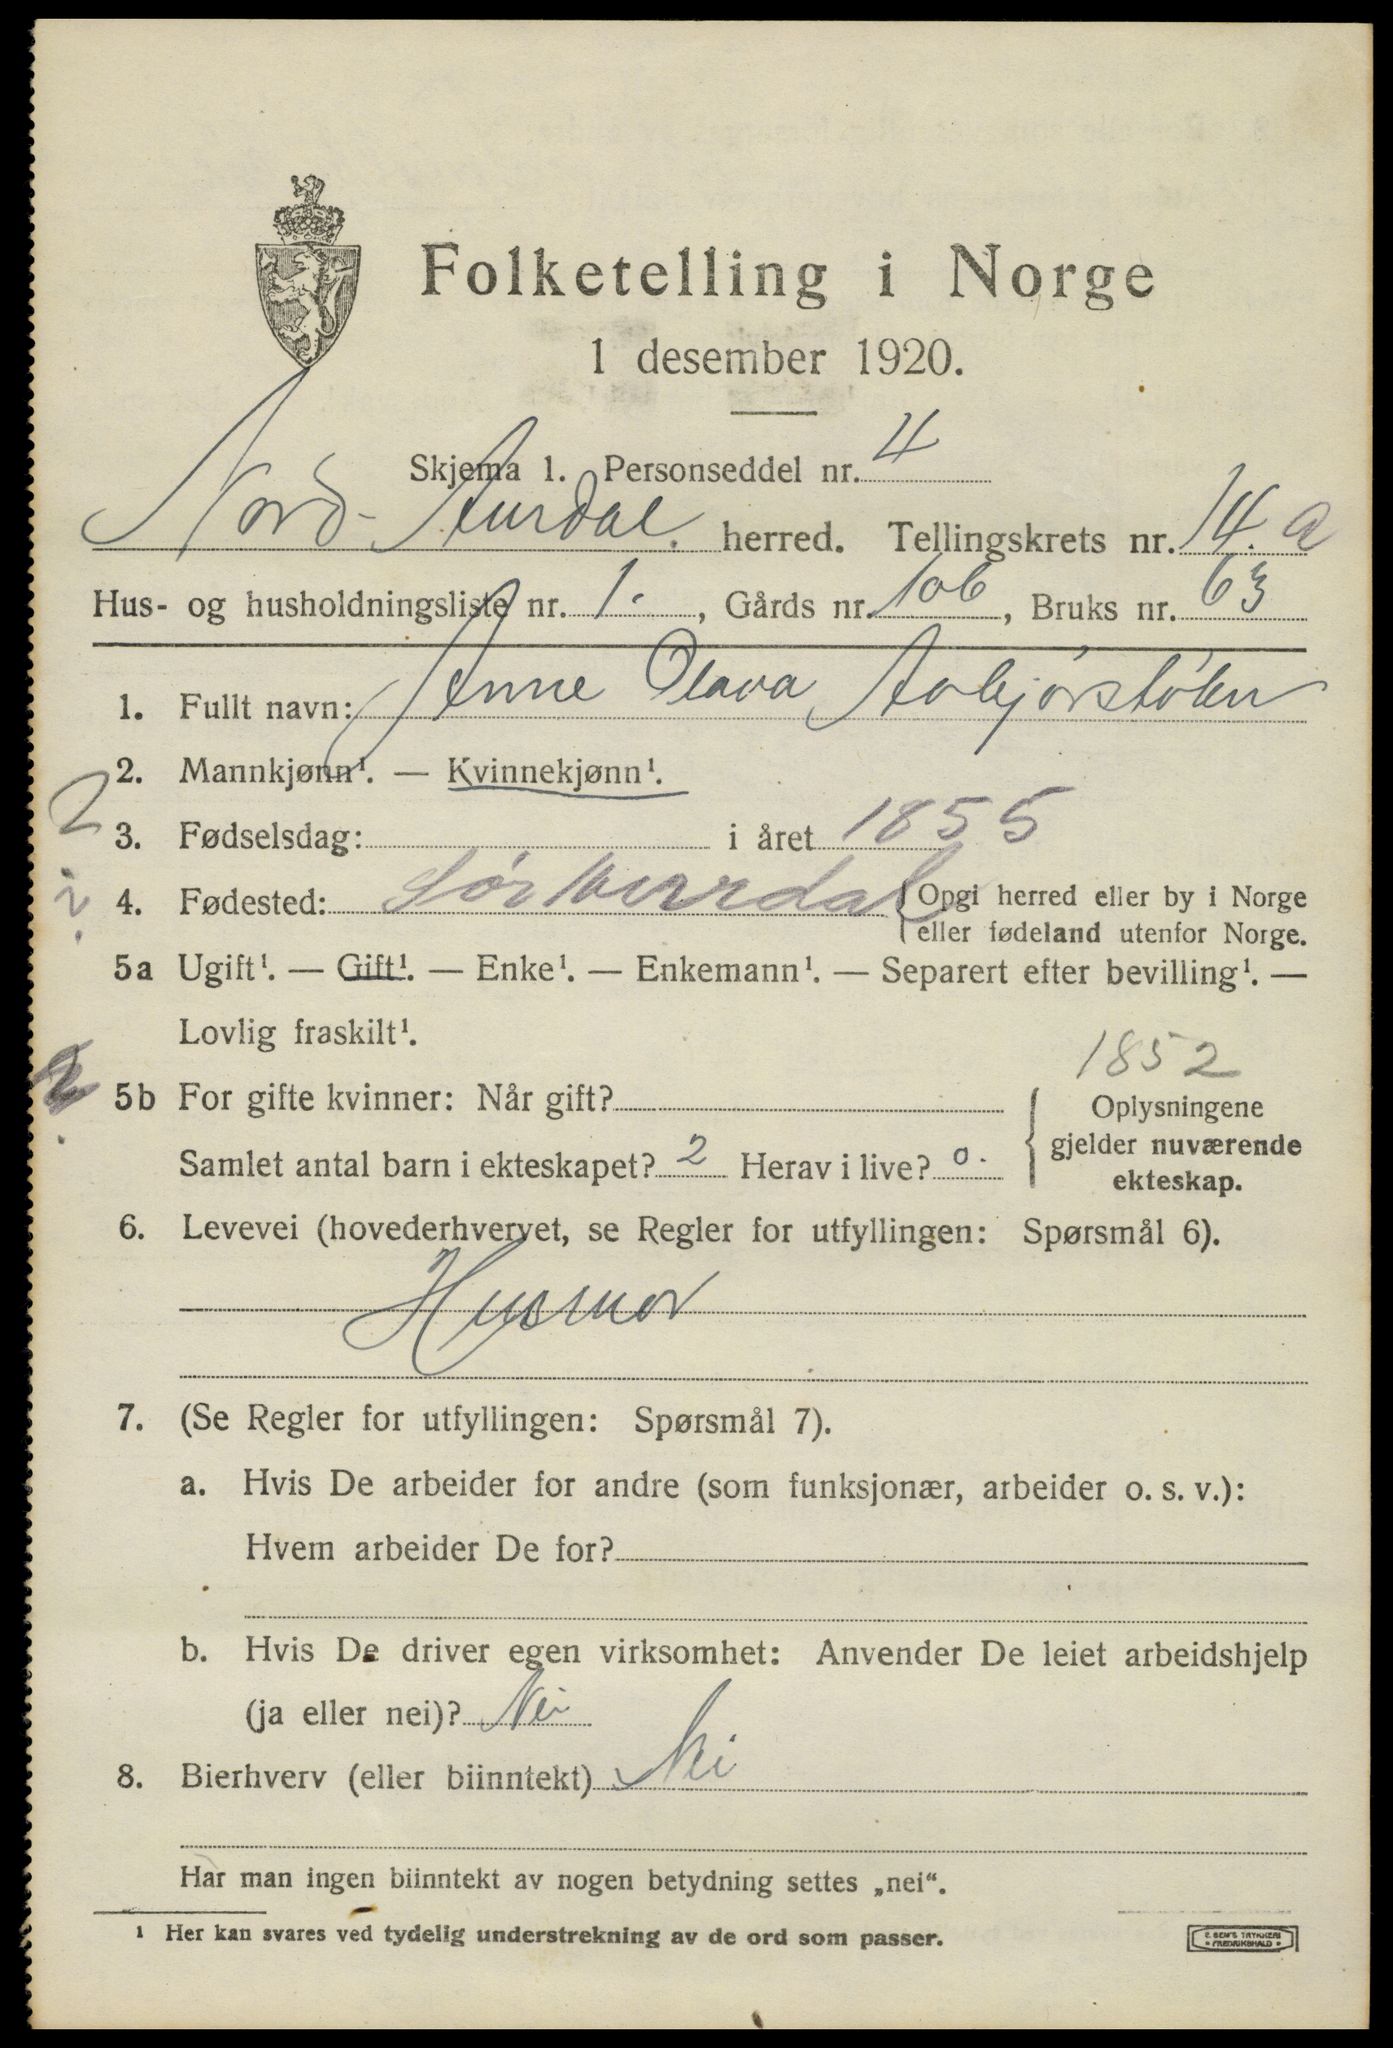 Folketelling i Norge
1 desember 1920.
Skjema 1. Personseddel nr. 4
Nord-Aurdal. herred. Tellingskrets nr. 14. a
Hus- og husholdningsliste nr. 1., Gårds nr. 106, Bruks nr. 63
1. Fullt navn: Anne Olava Asbjørstølen
2. Mannkjønn¹. — Kvinnekjønn¹.
3. Fødselsdag: i året 1855
4. Fødested: Sør Aurdal { Opgi herred eller by i Norge
eller fødeland utenfor Norge.
5a Ugift¹. — Gift¹. — Enke¹. — Enkemann¹. — Separert efter bevilling¹. —
Lovlig fraskilt¹.
1852
5b For gifte kvinner: Når gift?
Samlet antal barn i ekteskapet? 2 Herav i live? 0.
{ Oplysningene
gjelder nuværende
ekteskap.
6. Levevei (hovederhvervet, se Regler for utfyllingen: Spørsmål 6).
Husmor
7. (Se Regler for utfyllingen: Spørsmål 7).
a. Hvis De arbeider for andre (som funksjonær, arbeider o. s. v.):
Hvem arbeider De for?
b. Hvis De driver egen virksomhet: Anvender De leiet arbeidshjelp
(ja eller nei)? Nei
8. Bierhverv (eller biinntekt) Nei
Har man ingen biinntekt av nogen betydning settes „nei“.
¹ Her kan svares ved tydelig understrekning av de ord som passer.